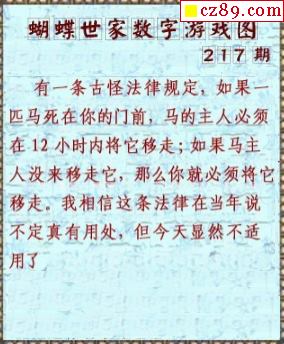 cz89.com
蝴蝶世家数字游戏图
217期
有一条古怪法律规定，如果一
匹马死在你的门前，马的主人必须
在12小时内将它移走；如果马主
人没来移走它，那么你就必须将它
移走。我相信这条法律在当年说
不定真有用处，但今天显然不适
用了